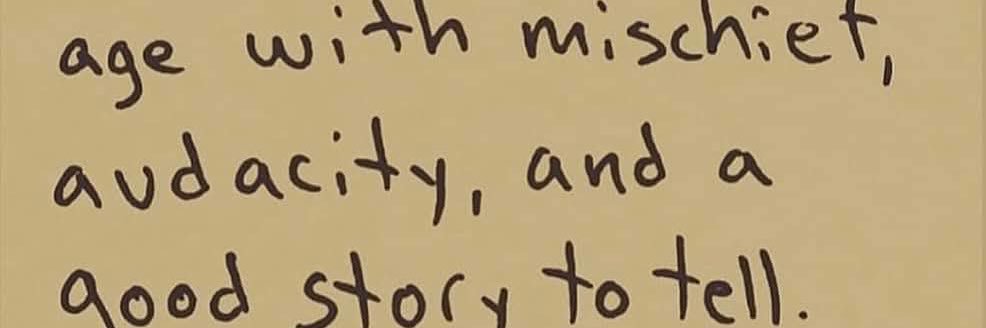 age with mischief,
audacity, and a
good story to tell.